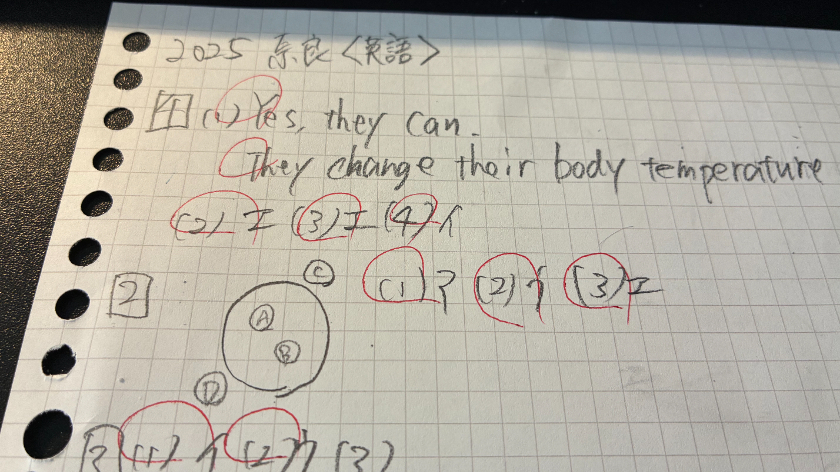 2025 奈良〈英語〉
1 (1) Yes, they can.
They change their body temperature
(2) エ (3) エ (4) イ
2 (1) ア (2) イ (3) エ
C
A
B
D
3 (1) イ (2) (3)